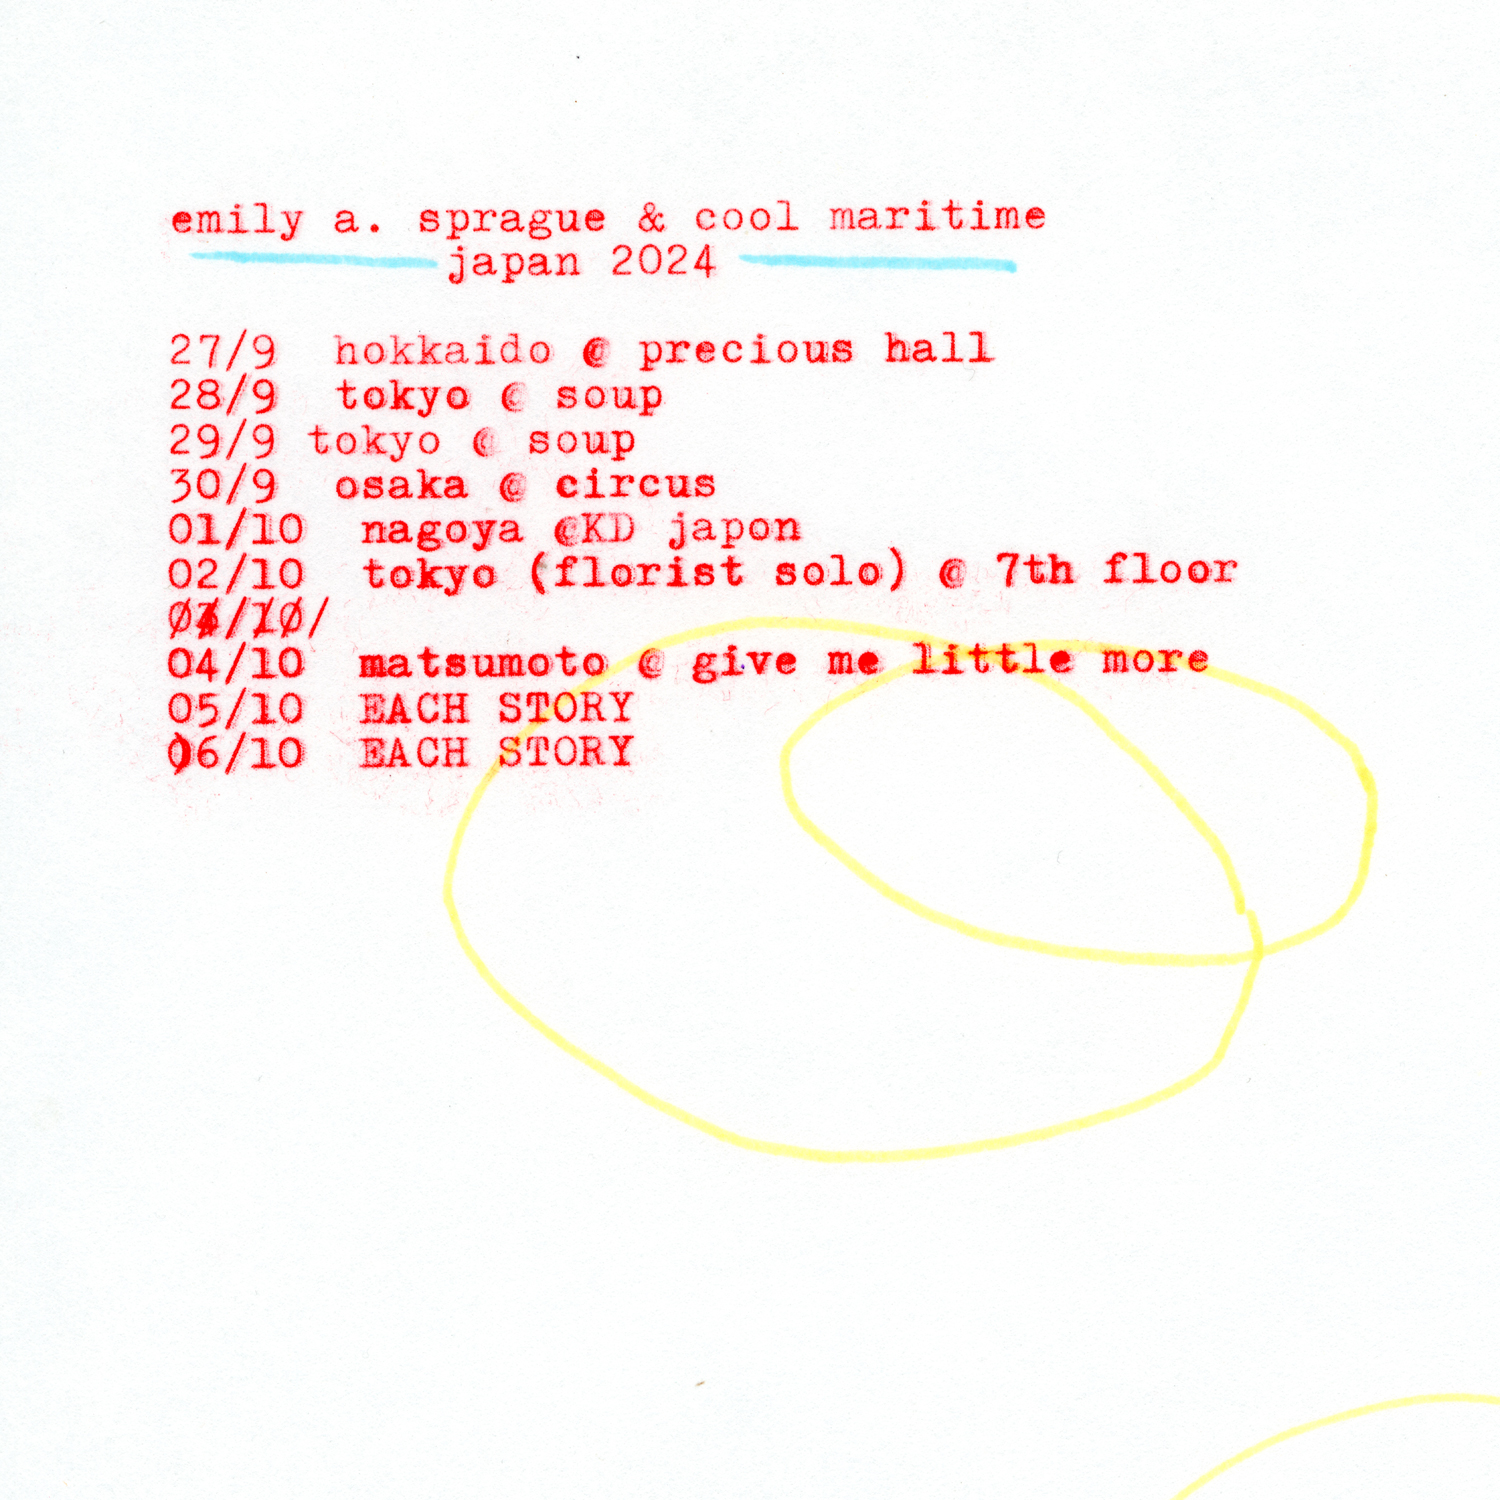 emily a. sprague & cool maritime
japan 2024
27/9 hokkaido @ precious hall
28/9 tokyo @ soup
29/9 tokyo @ soup
30/9 osaka @ circus
01/10 nagoya @KD japon
02/10 tokyo (florist solo) @ 7th floor
04/10 matsumoto @ give me little more
05/10 EACH STORY
06/10 EACH STORY